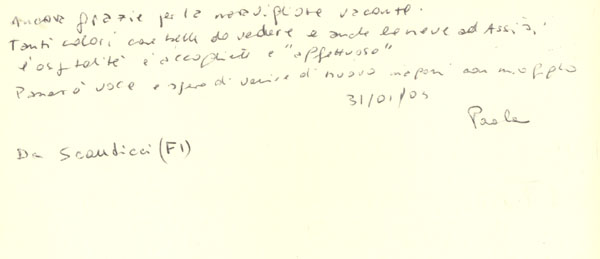 Ancora grazie per la meravigliosa vacanza.
Tanti colori cose belle da vedere e anche la neve ad Assisi,
l'ospitalità è accogliente e "affettuosa"
Passerò voce e spero di venire di nuovo magari con mio figlio
31/01/05
Paola
Da Scandicci (FI)